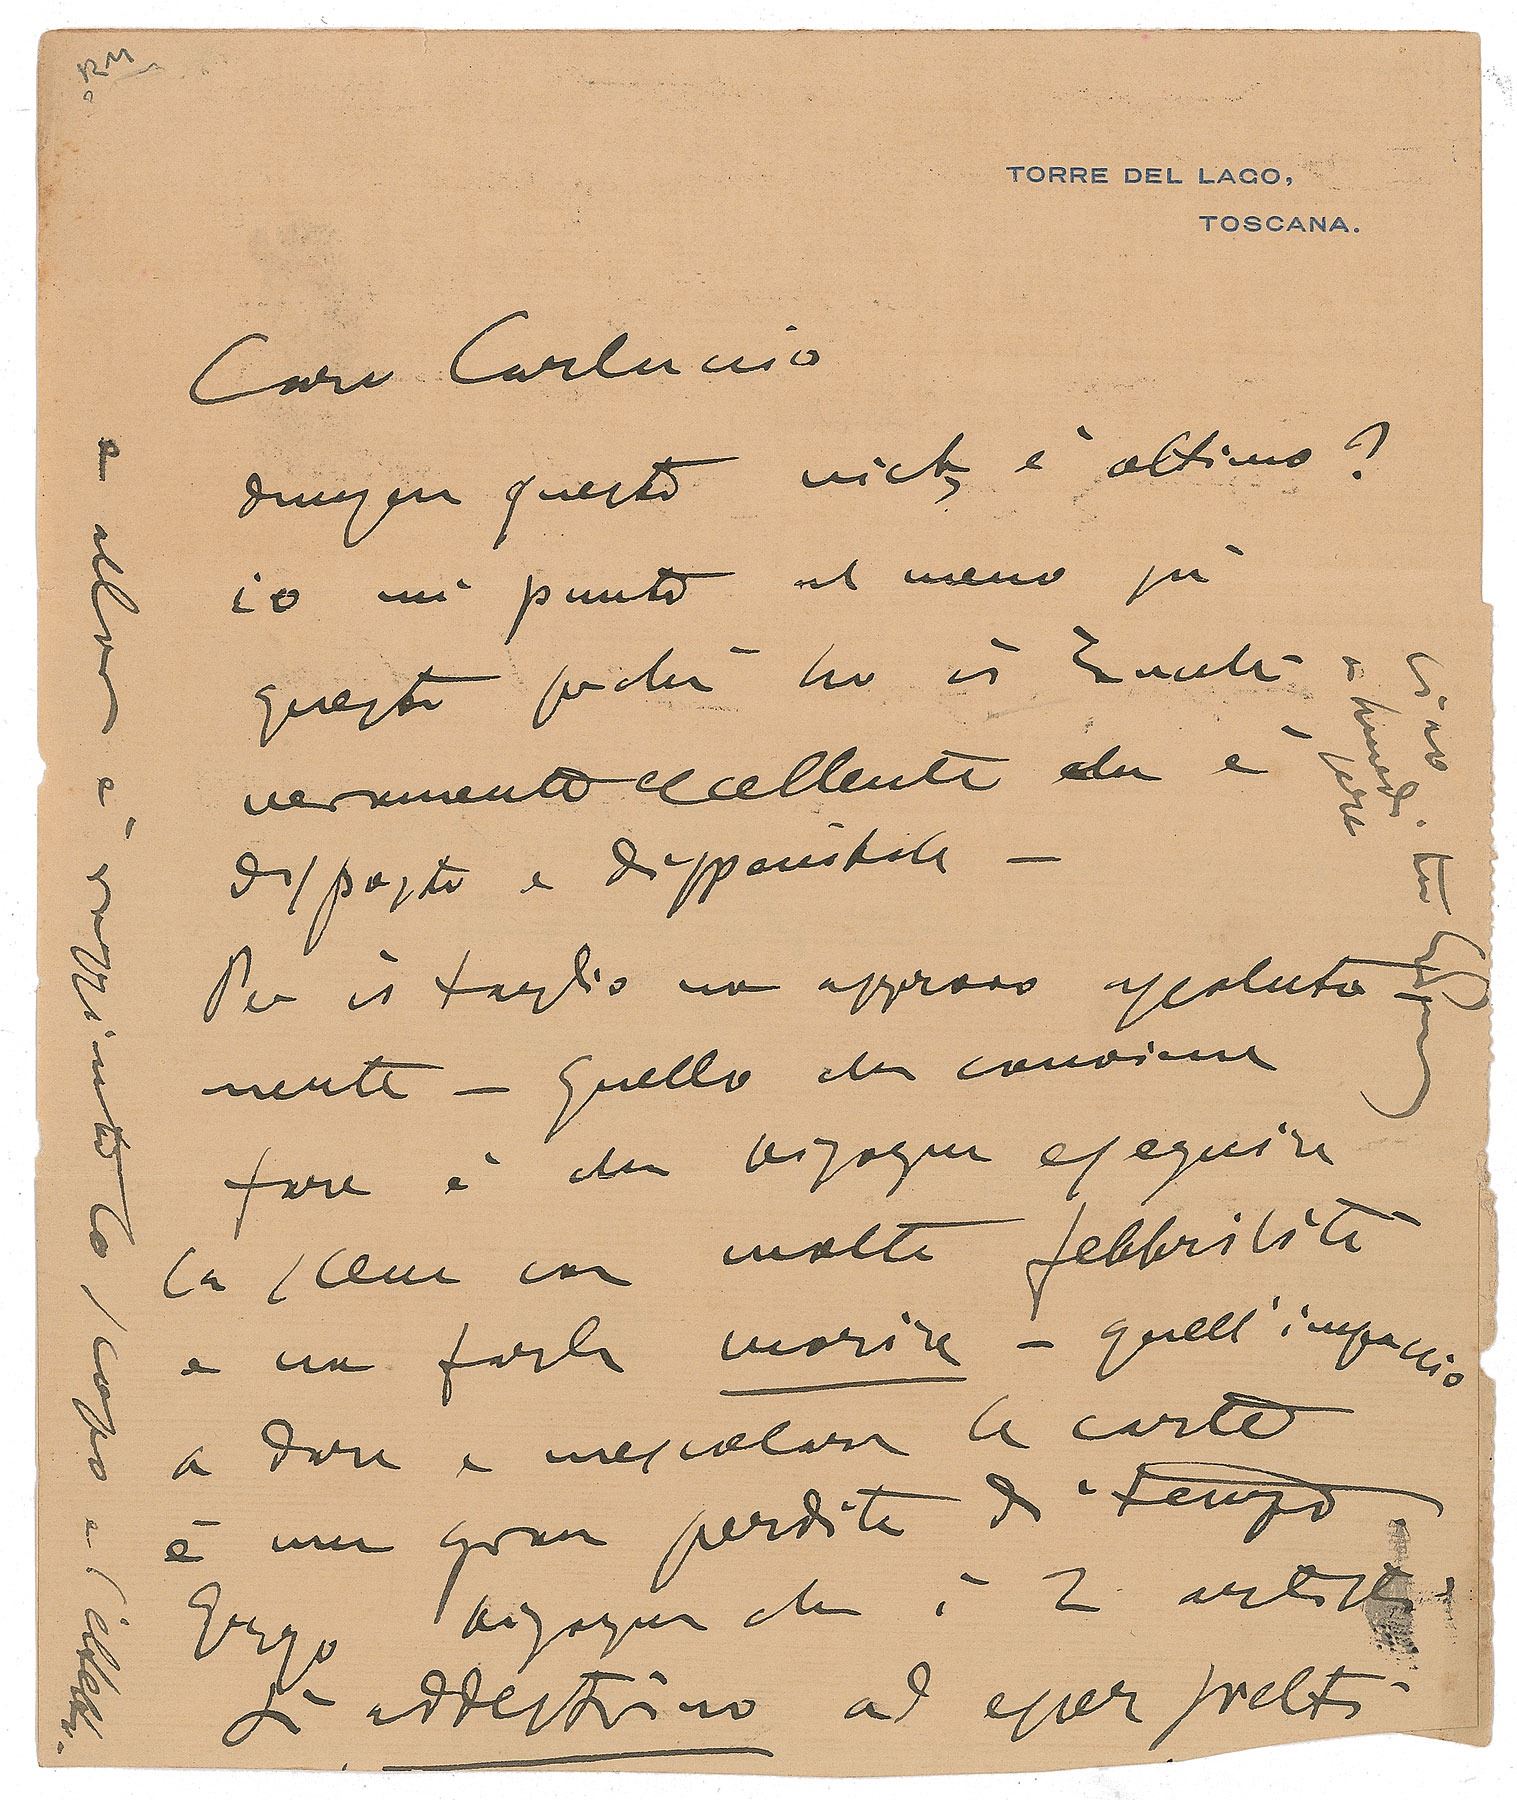 TORRE DEL LAGO,
TOSCANA.
Caro Carluccio
dunque questo è ottimo?
io mi punto al meno più
questo perchè ho il Zuccht
veramente eccellente che è
disposto e disponibile –
Per il taglio non approvo assoluta
mente – Quello che conviene
fare è che bisogna eseguire
la scena con molta febbrilità
e non farla morire – quell'impaccio
a dare e mescolare le carte
è una gran perdita di tempo
Quego bisogna che i 2 artisti
si addestrino ad esser svelti
e allora è raggiunto lo scopo e l'effetto.